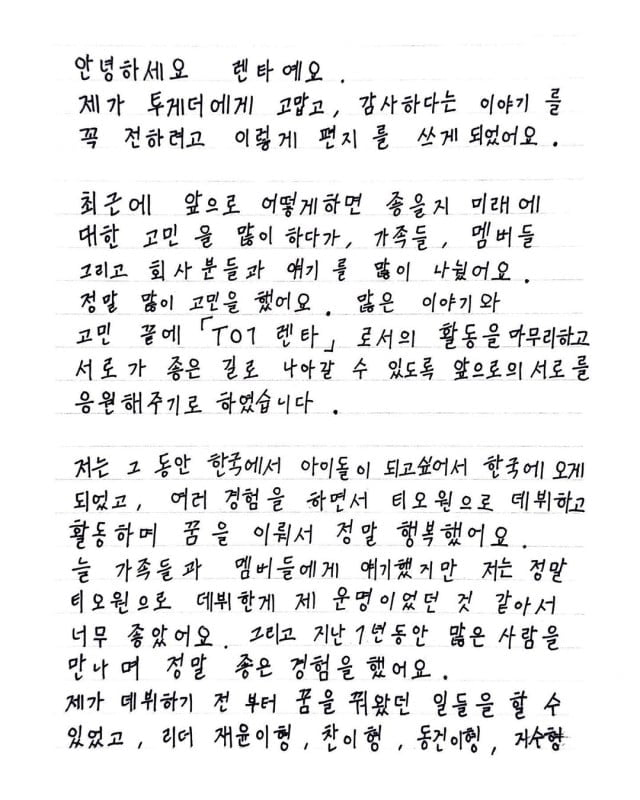 안녕하세요 렌타예요.
제가 투게더에게 고맙고, 감사하다는 이야기 를
꼭 전하려고 이렇게 편지 를 쓰게 되었어요.
최근에 앞으로 어떻게하면 좋을지 미래에
대한 고민 을 많이 하다가, 가족들, 멤버들
그리고 회사분들과 얘기 를 많이 나눴어요.
정말 많이 고민을 했어요. 많은 이야기와
고민 끝에 「TO1 렌타」 로서의 활동을 마무리하고
서로가 좋은 길로 나아갈 수 있도록 앞으로의 서로를
응원해주기로 하였습니다.
저는 그 동안 한국에서 아이돌이 되고싶어서 한국에 오게
되었고, 여러 경험을 하면서 티오원으로 데뷔하고
활동하며 꿈을 이뤄서 정말 행복했어요.
늘 가족들과 멤버들에게 얘기했지만 저는 정말
티오원으로 데뷔한게 제 운명이었던 것 같아서
너무 좋았어요. 그리고 지난 1년동안 많은 사람을
만나며 정말 좋은 경험을 했어요.
제가 데뷔하기 전 부터 꿈을 꿔왔던 일들을 할 수
있었고, 리더 재윤이형, 찬이형, 동건이형, 지수형